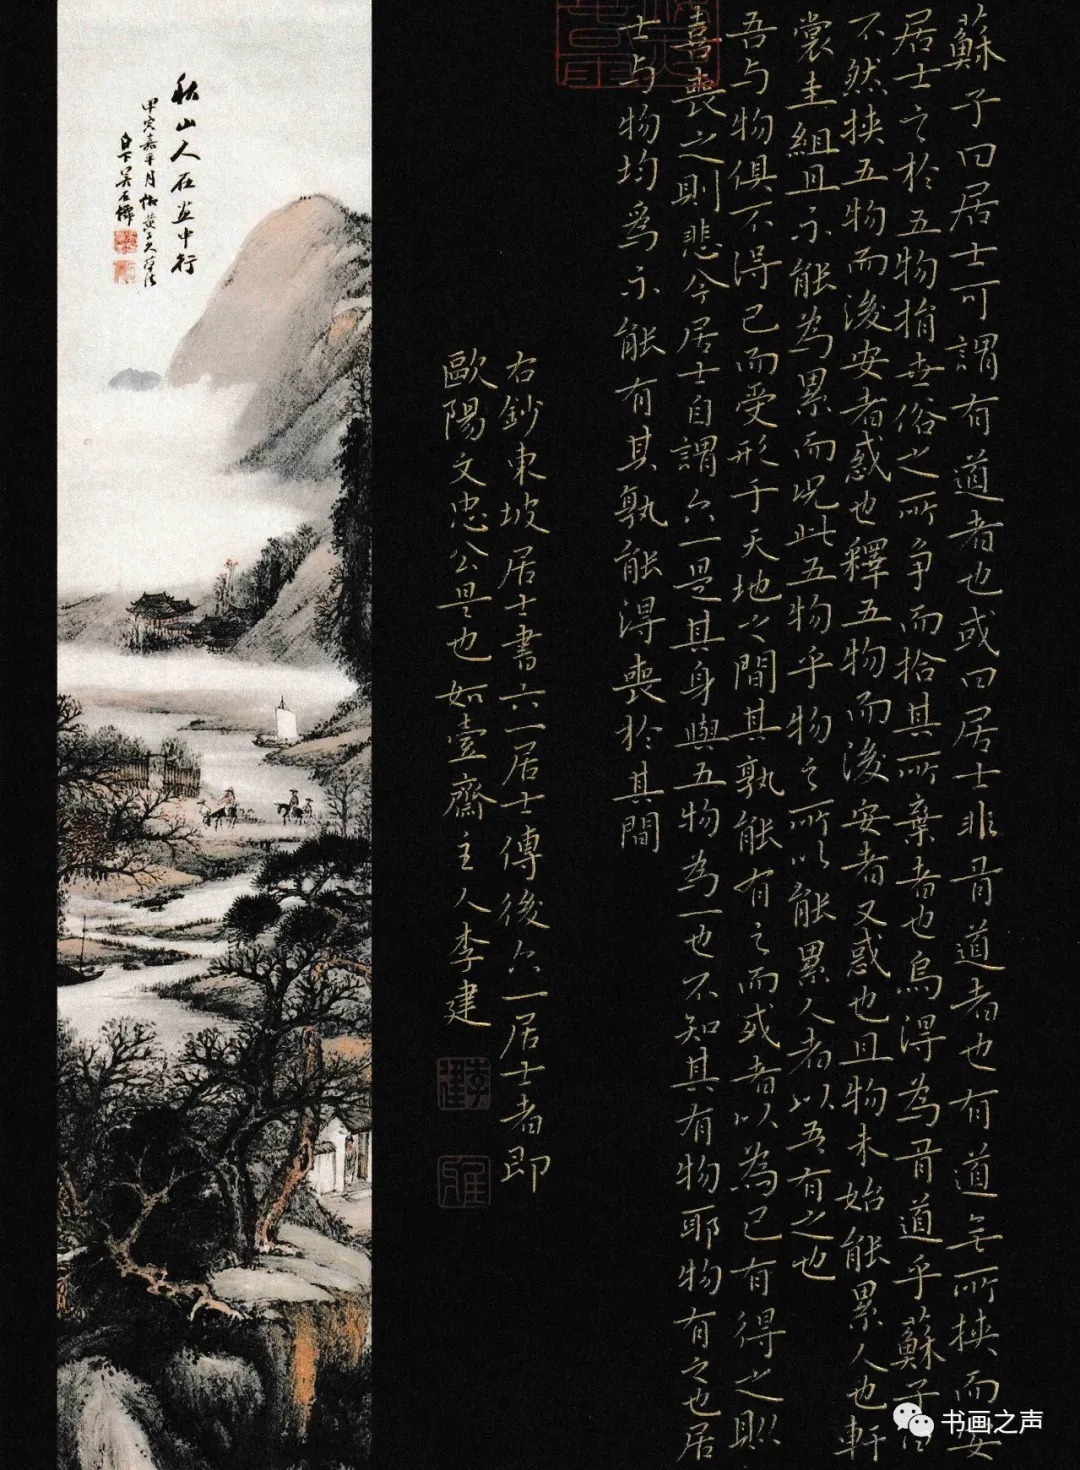 蘇子曰居士可謂有道者也或曰居士非有道者也有道無所挾而安
居士之於五物捐世俗之所爭而拾其所棄者也烏得為有道乎蘇子曰
不然挾五物而後安者惑也釋五物而後安者又惑也且物未始能累人也軒
裳圭組且不能為累而況此五物乎物之所以能累人者以吾有之也
吾与物俱不得已而受形于天地之間其孰能有之而或者以為己有得之則
喜喪之則悲今居士自謂六一是其身與五物為一也不知其有物耶物有之也居
士与物均為不能有其孰能得喪於其間
右鈔東坡居士書六一居士傳後六一居士者即
歐陽文忠公是也如壹齋主人李建
李建
秋山人在画中行
甲寅嘉平月
白下吴石僊
书画之声